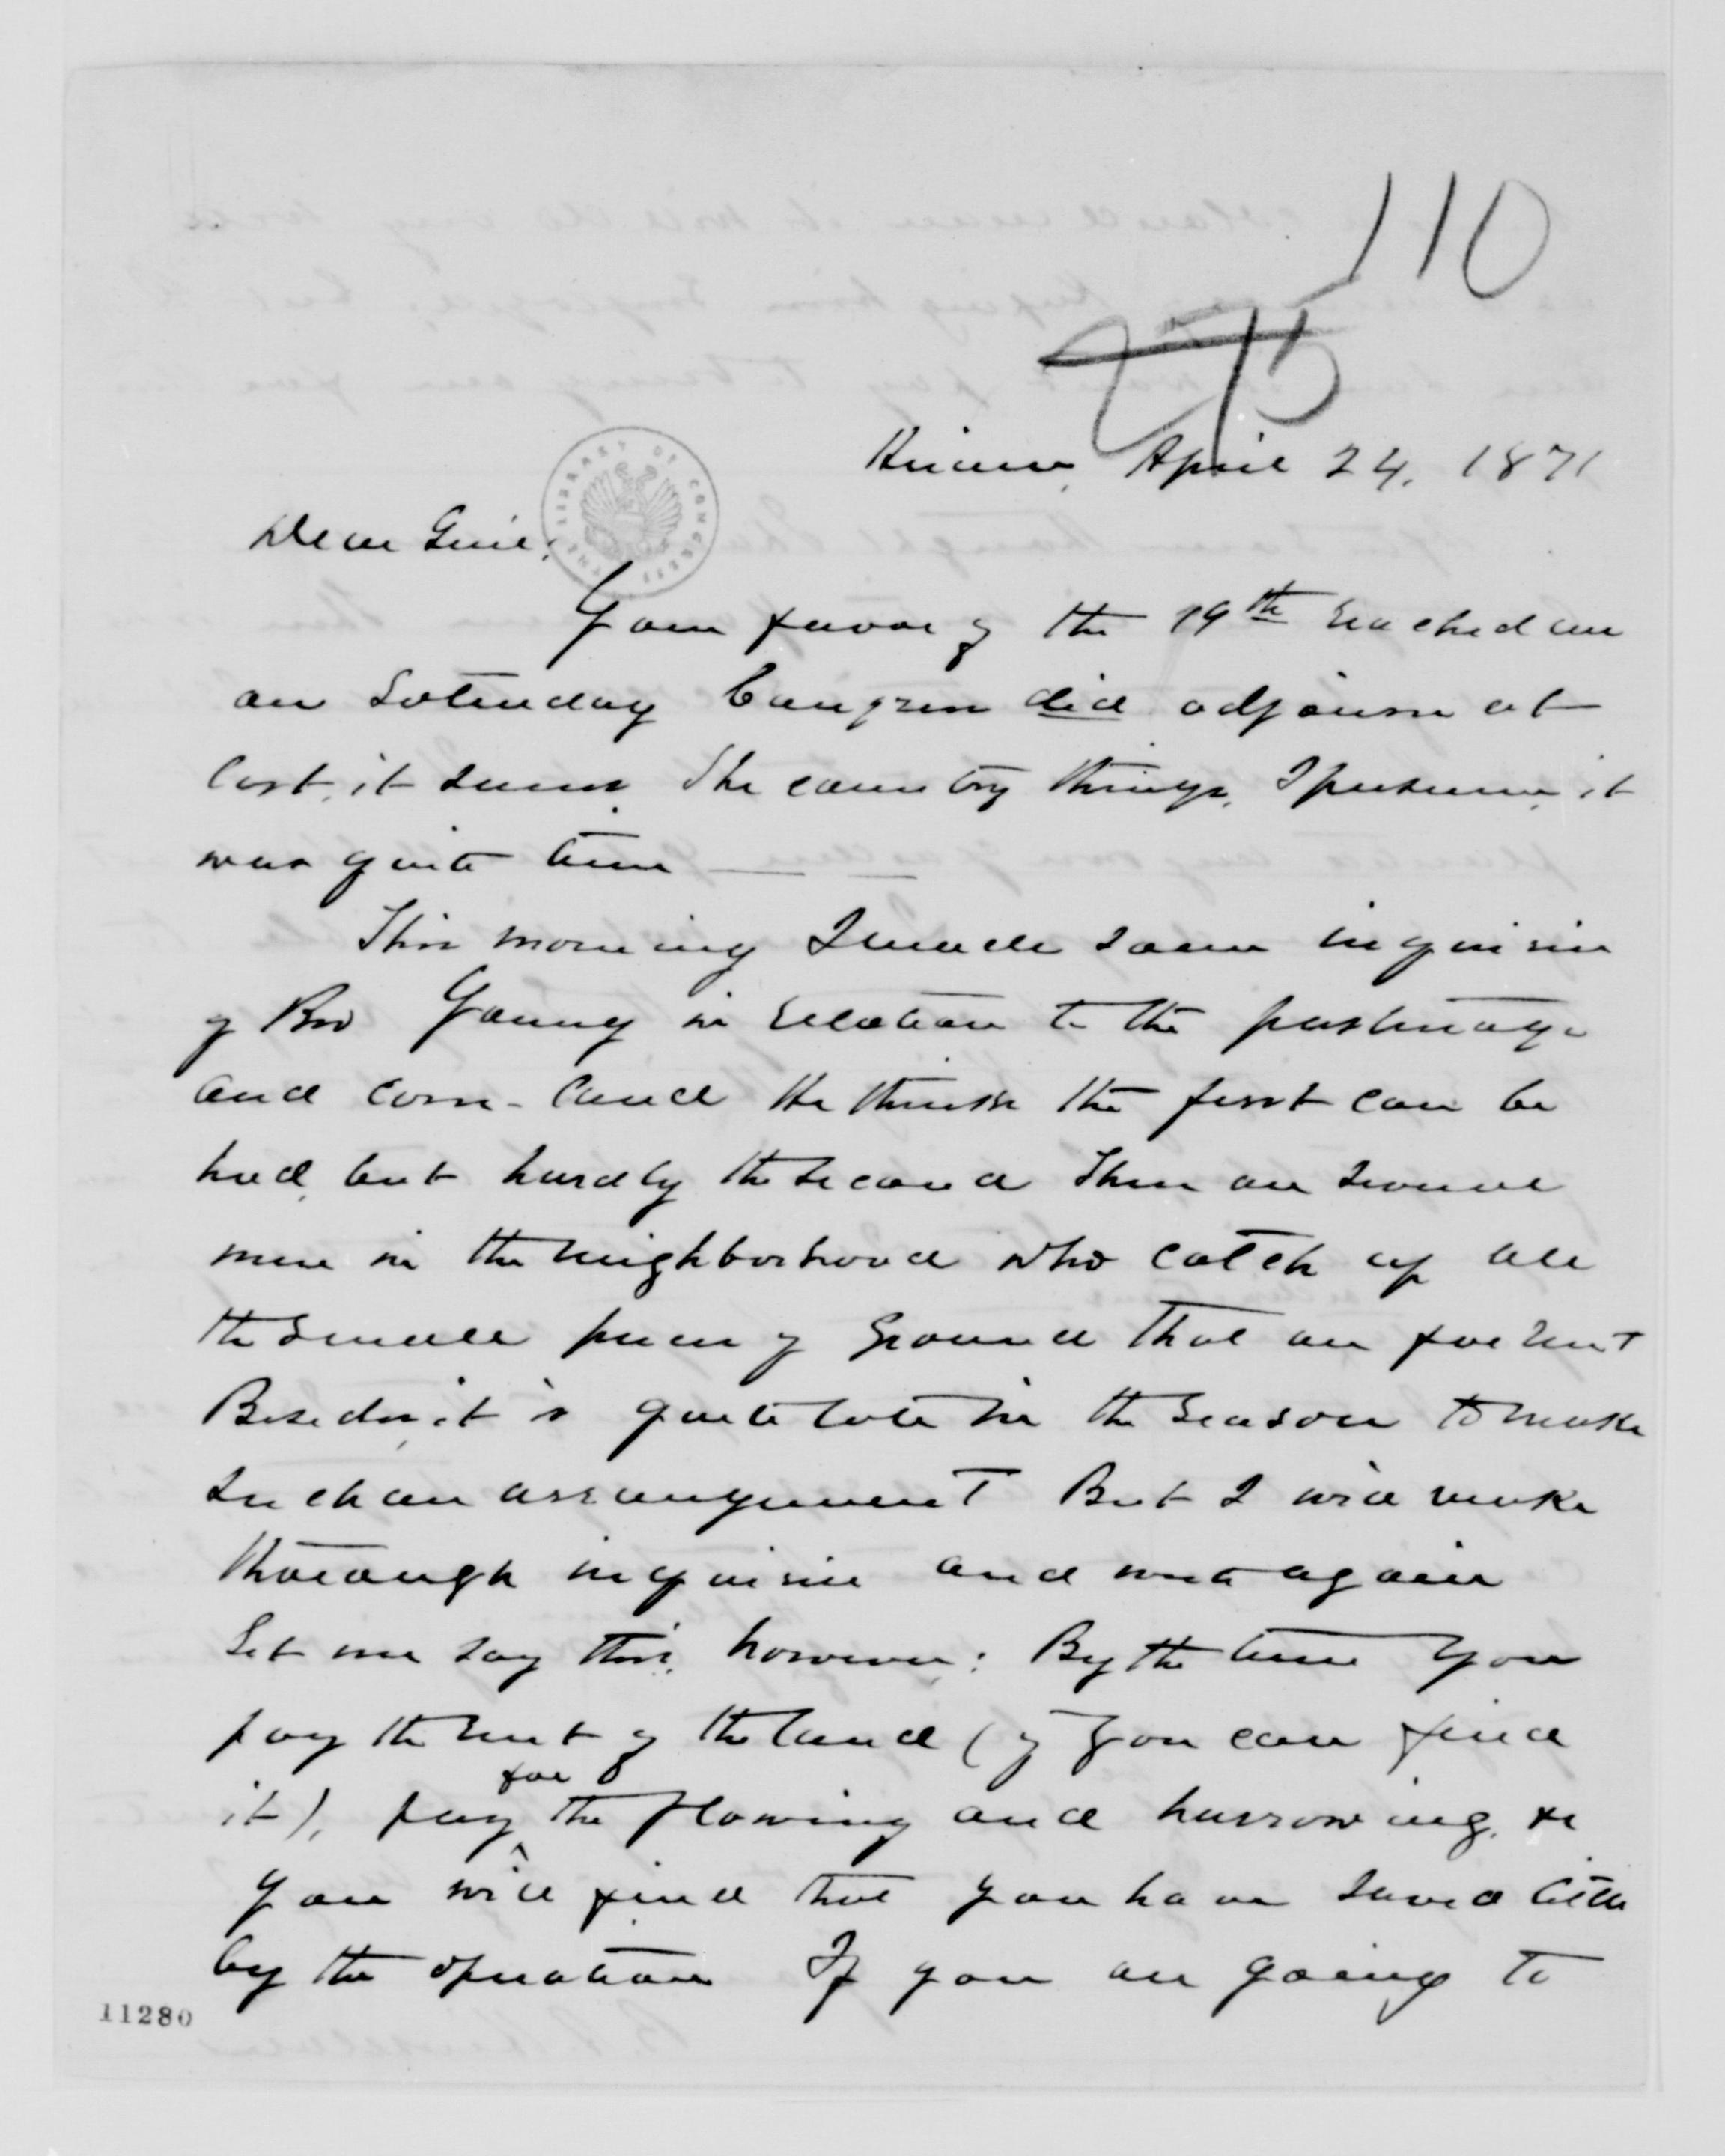 110
Hiram, April 24, 1871
THE LIBRARY OF CONGRESS
Dear Genl:
Your favor of the 19th reached me
on Saturday Congress did adjourn at
last, it seems. The country thinks, I presume, it
was quite time
This morning I made some inquiries
of Bro Young in relation to the pasturage
and corn-land He thinks the first can be
had, but hardly the second There are several
men in the neighborhood who catch up all
the small pieces of ground that are for rent
Besides, it is quite late in the season to make
such an arrangement But I will make
thorough inquiries and write again
Let me say this, however: By the time you
pay the rent of the land (if you can find
it), pay for the plowing and harrowing, &c
you will find that you have saved little
by the operation If you are going to
11280